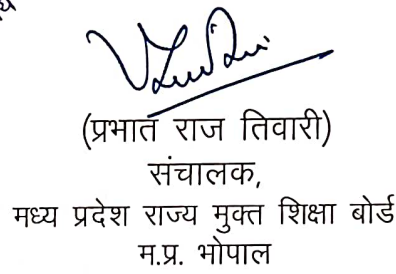 (प्रभात राज तिवारी)
संचालक,
मध्य प्रदेश राज्य मुक्त शिक्षा बोर्ड
म.प्र. भोपाल